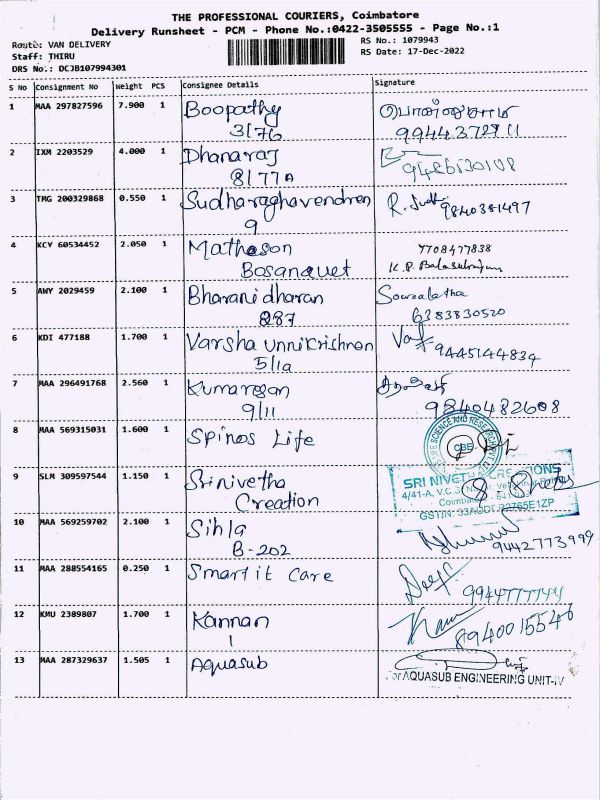 THE PROFESSIONAL COURIERS, Coimbatore
Delivery Runsheet - PCM - Phone No.:0422-3505555 - Page No.:1
Route: VAN DELIVERY
RS No.: 1079943
Staff: THIRU
RS Date: 17-Dec-2022
DRS No.: DCJB107994301
S No Consignment No Weight PCS Consignee Details Signature
1 MAA 297827596 7.900 1 Boopathy பொன்னுசாமி
3/76 9944372911
2 IXM 2203529 4.000 1 Dhanaraj
8/77A 9486130108
3 TMG 200329868 0.550 1 Sudharaghavendren R. Sudh 9840381497
9
4 KCY 60534452 2.050 1 Matheson 7708477838
Bosanquet K.P. Balasubramaniam
5 AWY 2029459 2.100 1 Bharanidharan
287 6383830520
6 KDI 477188 1.700 1 Varsha unnikrishnan
5/1a 9445144834
7 MAA 296491768 2.560 1 Kumaresan
9/11 9840482608
8 MAA 569315031 1.600 1 Spinos Life
LIFE SCIENCE AND RESEARCH
CBE
9 SLM 309597544 1.150 1 Srinivetha
Creation
SRI NIVETHA CREATIONS
4/41-A, V.C.
Coimbatore
GSTIN: 33
10 MAA 569259702 2.100 1 Sihla
B-202 9442773999
11 MAA 288554165 0.250 1 Smart it Care
9944777144
12 KMU 2389807 1.700 1 Kannan
1 8940015546
13 MAA 287329637 1.505 1 Aquasub
For AQUASUB ENGINEERING UNIT-IV